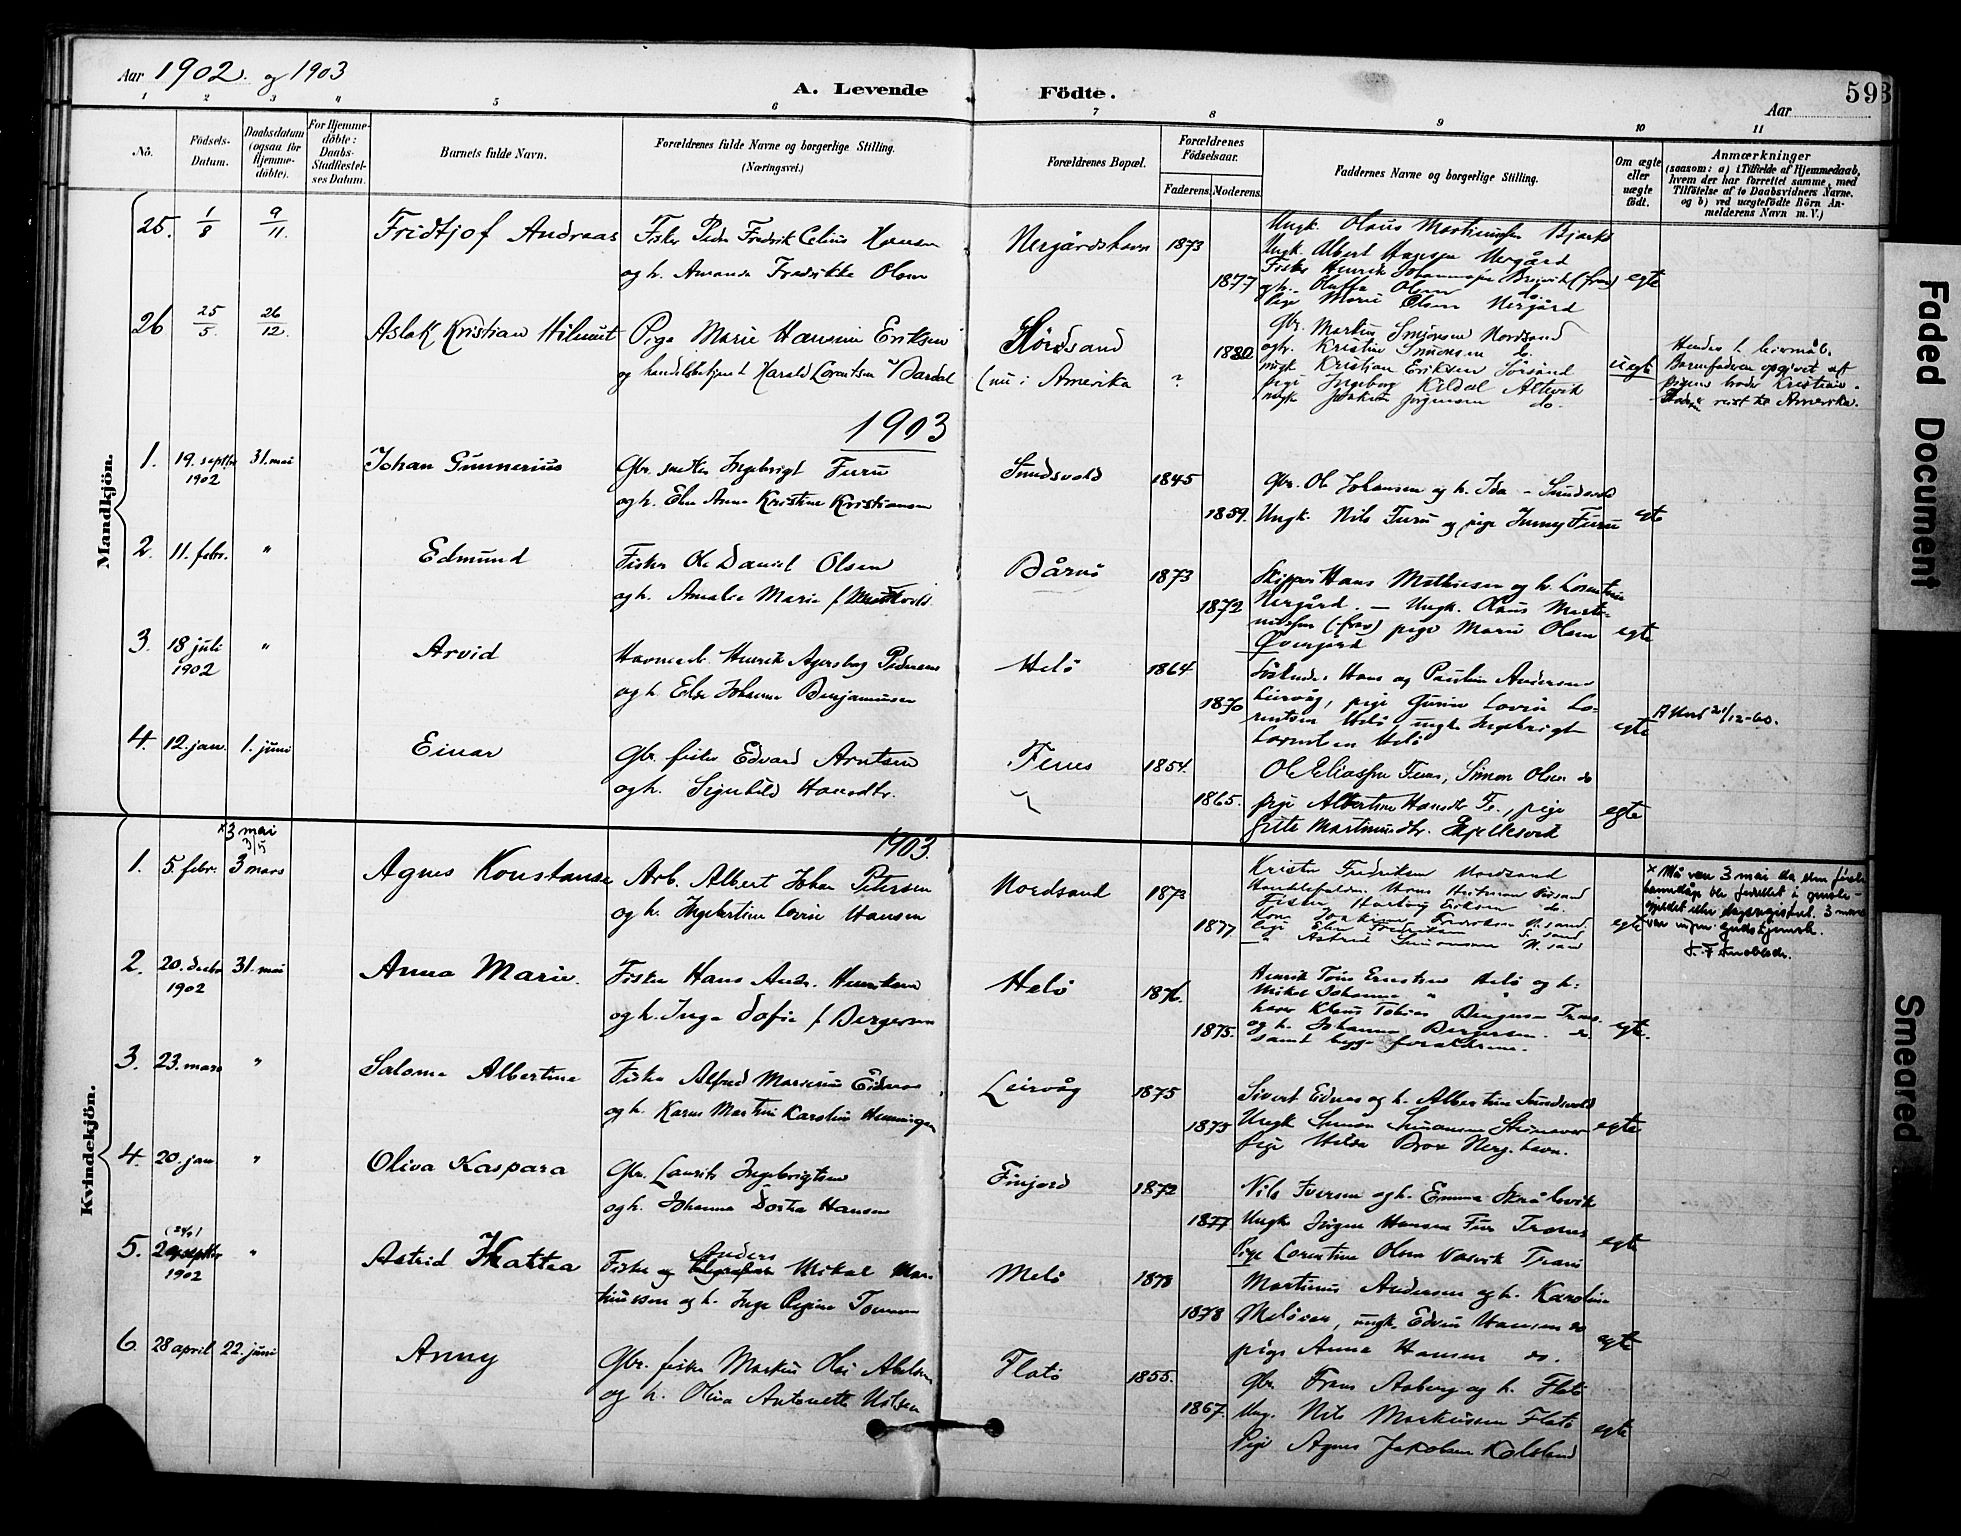 Aar 1902 og 1903
A. Levende Födte.
Aar
593
1 2 3 4 5 6 7 8 9 10 11
Nö.
Födsels-Datum.
Daabsdatum (ogsaa for Hjemme-döbte).
For Hjemme-döbte: Daabs-Stadfæstel-ses Datum.
Barnets fulde Navn.
Forældrenes fulde Navne og borgerlige Stilling. (Næringsvei.)
Forældrenes Bopæl.
Forældrenes Födselsaar.
Faderens. Moderens.
Faddernes Navne og borgerlige Stilling.
Om ægte eller uægte födt.
Anmærkninger
(saasom: a) i Tilfælde af Hjemmedaab, hvem der har forrettet samme, med Tilföielse af to Daabsvidners Navne. og b) ved uægtefödte Börn An-melderens Navn m. V.)
Mandkjön.
25. 1/8 9/11. Fridtjof Andreas
Fisker Peder Fredrik Celius Hansen
og h. Amanda Fredrikke Olsen
Nergårdshavn 1873 1877
Ungk. Olaus Martinussen
Ungk. Albert Hansen Nergård
Fisker Henrik Johannesen
og h. Oluffa Olsen do.
Pige Marie Olsen Nergård
egte
26 25/5. 26/12. Aslak Kristian Hilmut
Pige Marie Hansine Eriksen
og handelsbetjent Harald Lorentsen Vardal
Sörsand
(nu i Amerika 1880 ?
Gbr. Markus Simonsen Nordsand
og h. Kristine Simonsen do.
ungk Kristian Eriksen Sörsand
pige Ingeborg Kildal Altevik
ungk Jakob Jörgensen do.
uegte
Hendes 1. leiermål.
Barnefaderen opgivet af
pigens broder Kristian.
reist til Amerika.
1903
1. 19. septbr 1902 31. mai Johan Gunnerius
Gbr. snedker Ingebrigt Furu
og h. Elen Anna Kristine Kristiansen
Sundsvold 1845 1859.
Gbr. Ole Johansen og h. Ida - Sundsvold
Ungk. Nils Furu og pige Jenny Furu
egte
2. 11. febr. " Edmund
Fisker Ole Daniel Olsen
og h. Amalie Marie f.
Bårnö 1873 1872
Skipper Hans Mathisen og h. Lorentine
Nergård. - Ungk. Olaus Marti-
nussen (frav) pige Marie Olsen
Övergård
egte
3. 18 juli 1902 " Arvid
Henrik Agersborg Pedersen
og h. Else Johanna Benjaminsen
Helö 1864 1870
Söskende Hans og Pauline Andersen
Leirvåg, pige Lovise Lo-
rentsen Helö, ungk Ingebrigt
Lorentsen Helö
egte
A. Utst 21/12-60.
4. 12. jan. 1. juni Einar
Gbr. fisker Edvard Arntsen
og h. Signhild Hansdtr.
Fenes 1854. 1865.
Ole Eliassen Fenes, Simon Olsen do
pige Albertine Hansdtr Fe., pige
Gitte Martinusdtr.
egte
Kvindekjön.
1903.
x 3 mai 3/5
1. 5. febr. 3 mars Agnes Konstanse
Arb. Albert Johan Petersen
og h. Ingebertine Lovise Hansen
Nordsand 1873 1877
Kristen Fredriksen Nordsand
Fisker Hartvig Eriksen do.
Kone Fredriksen N. sand.
pige Elen Fredriksen S. sand
" Astrid Simonsen N. sand
egte
x Må være 3 mai da
3 mars
var ingen gudstjeneste.
2. 20. decbr 1902 31. mai Anna Marie.
Fisker Hans Andr. Henriksen
og h. Inga Sofie f. Bergersen
Helö 1876. 1875.
Henrik Töns Ernstsen Helö og h:
Mikal Johanna " "
Klaus Tobias Trones
og h. Johanna Bergersen. do.
samt begge forældrene.
egte.
3. 23. mars " Salome Albertine
Fisker Alfred Marenius Eidnes
og h. Karen Martine Karstine Henningsen
Leirvåg 1875 1875
Sivert Ednes og h. Albertine Sundsvold
Ungk Simon Simonsen Steinavær
pige Hilda Brox Nerg. havn.
egte
4. 20. jan " Oliva Kaspara
Gbr. Laurits Ingebrigtsen
og h. Johanna Dorthea Hansen
Finjord 1872 1877
Nils Iversen og h. Emma Skrålsvik
Ungk. Jörgen Hansen Fur Trones
Pige Lorentine Olsen Vasvik Trani
egte
5. 29. septbr 1902 " Astrid Mattea
Anders
Fisker og telegrafarb. Mikal Mar-
tinussen og h. Inga Regine Tommesen
Melö 1878 1878
Martinus Andersen og h. Karoline
Melövær, ungk. Edvin Hansen do
pige Anna Hansen do.
egte
6. 28 april 22. juni Anny
Gbr. fisker Markus Olai Abelsen
og h. Oliva Antonette Nilsen
Flatö 1855. 1867.
Gbr. Frans Aaberg og h. Flatö
Ung. Nils Markussen Flatö
Pige Agnes Jakobsen Kalsland
egte
Faded Document
Smeared